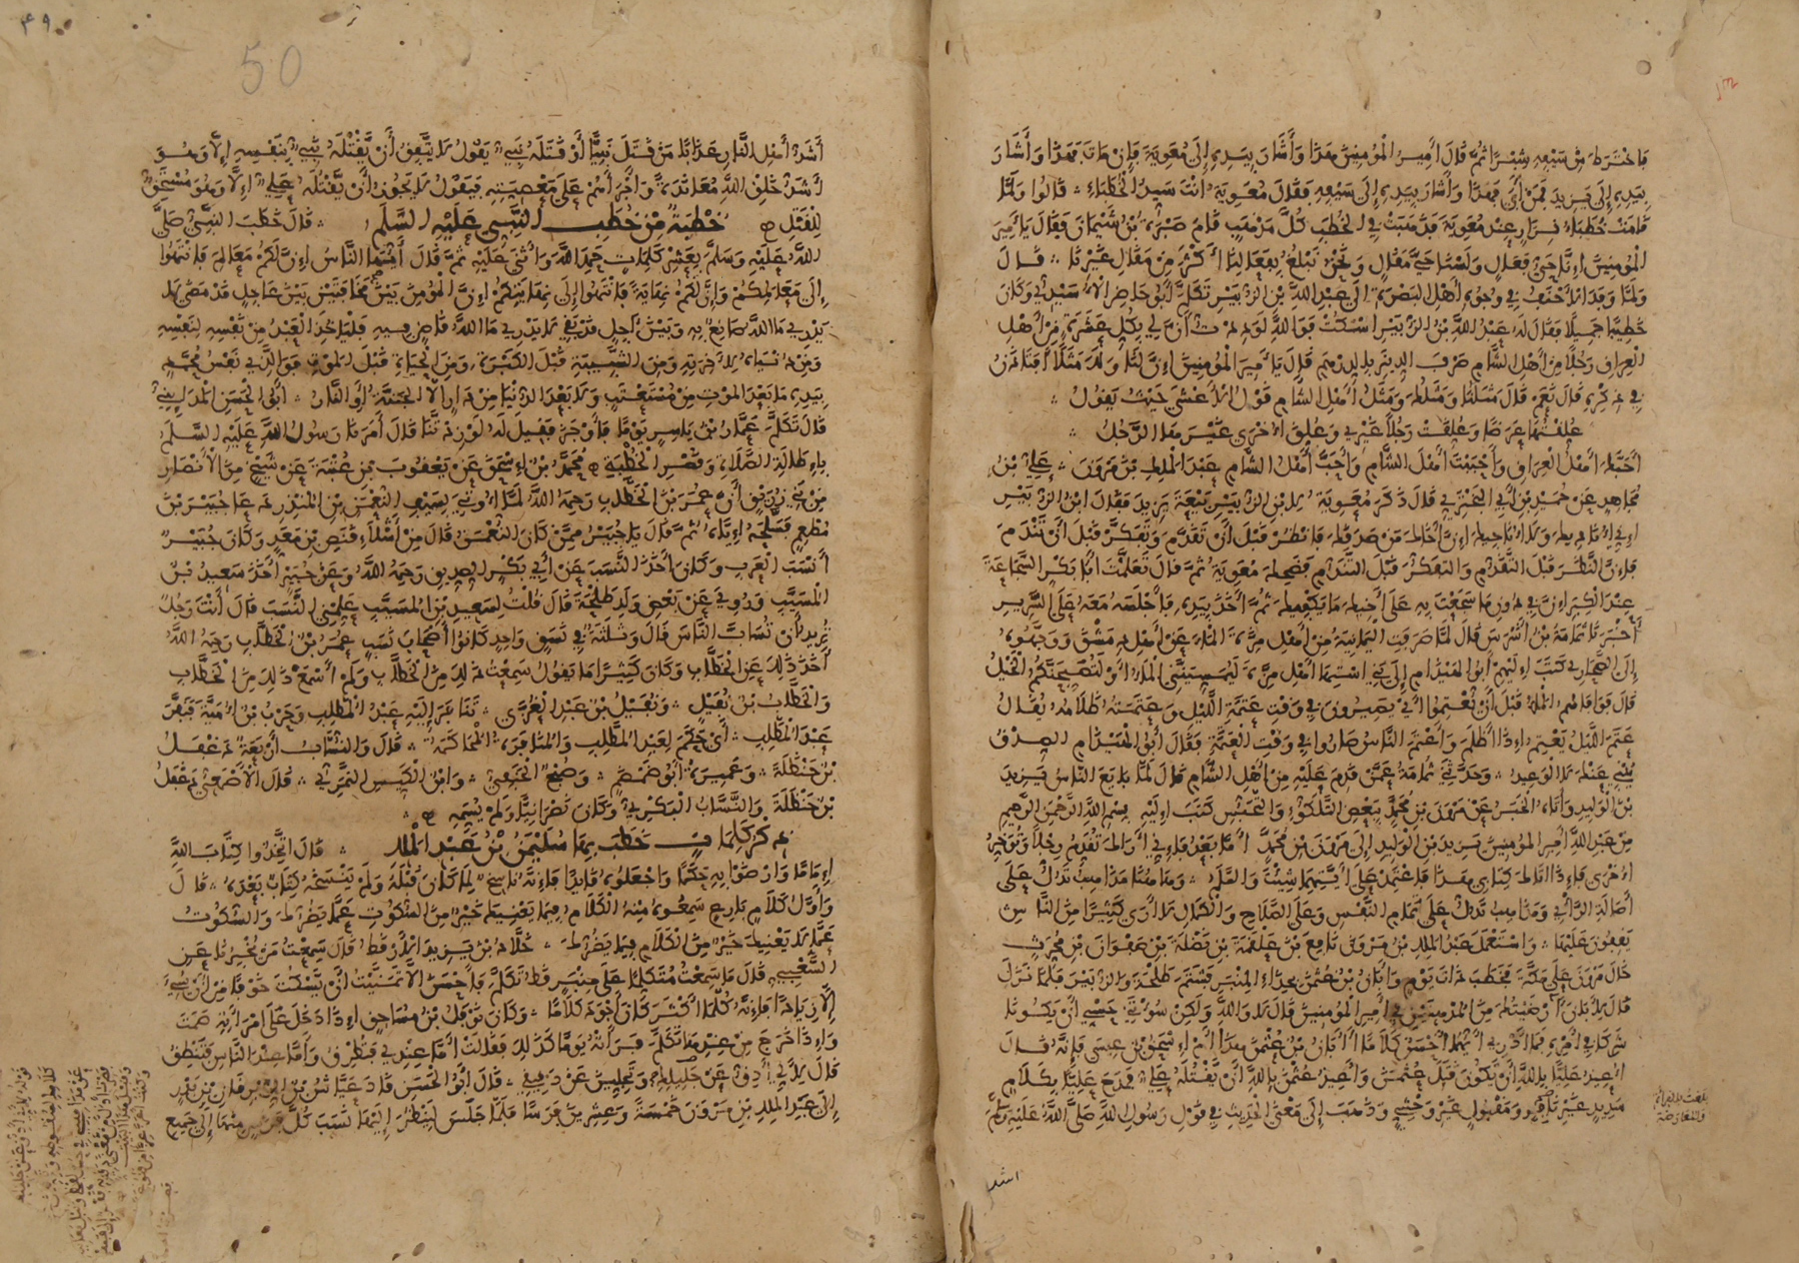 فاخترط من سيفه شبرا ثم قال أمير المؤمنين هذا وأشار بيده إلى معوية فإن مات فهذا وأشار
بيده إلى يزيد فمن أبى فهذا وأشار بيده إلى سيفه فقال معوية أنت سيد الخطباء قالوا ولما
قامت خطباء نزار عند معوية فذهبت في الخطب كل مذهب قام صبرة بن شيمان فقال يا أمير
المؤمنين إنا حي فعال ولسنا حي مقال ونحن نبلغ بفعالنا أكثر من مقال غيرنا قال
ولما وفد الأحنف في وجوه أهل البصرة إلى عبد الله بن الزبير تكلم أبو حاضر الأسيدي وكان
خطيبا جميلا فقال له عبد الله بن الزبير اسكت فوالله لوددت أن لي بكل عشرة من أهل
العراق رجلا من أهل الشام صرف الدينر بالدرهم قال يا أمير المؤمنين إن لنا ولك مثلا أفتأذن
في ذكره قال نعم قال مثلنا ومثلك ومثل أهل الشام قول الأعشى حيث يقول
علقتها عرضا وعلقت رجلا غيري وعلق أخرى غير هذا الرجل
أحبك أهل العراق وأحببت أهل الشام وأحب أهل الشام عبد الملك بن مرون علي بن
مجاهد عن حميد بن أبي البختري قال ذكر معوية لابن الزبير بيعة يزيد فقال ابن الزبير
إني أناديك ولا أناجيك إن أخاك من صدقك فانظر قبل أن تقدم وتفكر قبل أن تندم
فإن النظر قبل التقدم والتفكر قبل التندم فضحك معوية ثم قال تعلمت أبا بكر الشجاعة
عند الكبر إن في دون ما سجعت به على أخيك ما يكفيك ثم أخذ بيده فأجلسه معه على السرير
أخبرنا ثمامة بن أشرس قال لما صرفت اليمانية من أهل مزة الماء عن أهل دمشق ووجهوه
إلى الصحاري كتب إليهم أبو الهيذام إلى بني استها أهل مزة ليمسيني الماء أو لتصبحنكم الخيل
قال فوافاهم الماء قبل أن يعتموا أي يصيرون في وقت عتمة الليل وعتمته ظلامه يقال
عتم الليل يعتم إذا أظلم وأعتم الناس صاروا في وقت العتمة فقال أبو الهيذام الصدق
ينبي عنك لا الوعيد وحدثني ثمامة عمن قدم عليه من أهل الشام قال لما بايع الناس يزيد
بن الوليد وأتاه الخبر عن مرون بن محمد ببعض التلكؤ والتحبس كتب إليه بسم الله الرحمن الرحيم
من عبد الله أمير المؤمنين يزيد بن الوليد إلى مرون بن محمد أما بعد فإني أراك تقدم رجلا وتؤخر
أخرى فإذا أتاك كتابي هذا فاعتمد على أيتهما شئت والسلم وهاهنا مذاهب تدل على
أصالة الرأي ومذاهب تدل على تمام النفس وعلى الصلاح والكمال لا أرى كثيرا من الناس
يقفون عليها واستعمل عبد الملك بن مرون نافع بن علقمة بن نضلة بن صفوان بن محرث
خال مرون على مكة فخطب ذات يوم وأبان بن عثمن بحذاء المنبر فشتم طلحة والزبير فلما نزل
قال لأبان أرضيتك من المدهنين في أمير المؤمنين قال لا والله ولكن سؤتني حسبي أن يكونا
شركا في أمره فما أدري أيهما أحسن كلاما أبان بن عثمن هذا أم إسحق بن عيسى فإنه قال
أعيذ عليا بالله أن يكون قتل عثمن وأعيذ عثمن بالله أن يقتله علي فمدح عليا بكلام
سديد غير نافر ومقبول غير وحشي وذهب إلى معنى الحديث في قول رسول الله صلى الله عليه وسلم
بلغت بالقراءة
والمعارضة
أشد
٤٩
50
أشد أهل النار عذابا من قتل نبيا أو قتله نبي يقول لا يتفق أن يقتله نبي بنفسه إلا وهو
أشد خلق الله معاندة وأجرأهم على معصيته فيقول لا يجوز أن يقتله علي إلا وهو مستحق
للقتل خطبة من خطب النبي عليه السلم قال خطب النبي صلى
الله عليه وسلم بعشر كلمات حمد الله وأثنى عليه ثم قال أيها الناس إن لكم معالم فانتهوا
إلى معالمكم وإن لكم نهاية فانتهوا إلى نهايتكم إن المؤمن بين مخافتين بين عاجل قد مضى لا
يدري ما الله صانع به وبين آجل قد بقي لا يدري ما الله قاض فيه فليأخذ العبد من نفسه لنفسه
ومن دنياه لآخرته ومن الشبيبة قبل الكبرة ومن الحياة قبل الموت فوالذي نفس محمد
بيده ما بعد الموت من مستعتب ولا بعد الدنيا من دار إلا الجنة أو النار أبو الحسن المدايني
قال تكلم عمار بن ياسر يوما فأوجز فقيل له لو زدتنا قال أمرنا رسول الله عليه السلم
بإطالة الصلاة وقصر الخطبة محمد بن إسحق عن يعقوب بن عتبة عن شيخ من الأنصار
من بني زريق أن عمر بن الخطاب رحمه الله لما أوتي بسيف النعمن بن المنذر دعا جبير بن
مطعم فسلحه إياه ثم قال يا جبير ممن كان النعمن قال من أشلاء قنص بن معد وكان جبير
أنسب العرب وكان أخذ النسب عن أبي بكر الصديق رحمه الله وعن جبير أخذ سعيد بن
المسيب وروي عن بعض ولد طلحة قال قلت لسعيد بن المسيب علمني النسب قال أنت رجل
تريد أن تساب الناس قال وثلثة في نسق واحد كانوا أصحاب نسب عمر بن الخطاب رحمه الله
أخذ ذلك عن الخطاب وكان كثيرا ما يقول سمعت ذلك من الخطاب ولم أسمع ذلك من الخطاب
والخطاب بن نفيل ونفيل بن عبد العزى تنافر إليه عبد المطلب وحرب بن أمية فنفر
عبد المطلب أي حكم لعبد المطلب والمنافرة المحاكمة قال والنساب أربعة دغفل
بن حنظلة وعميرة أبو ضمضم وصبح الحنفي وابن الكيس النمري قال الأصمعي دغفل
بن حنظلة والنساب البكري وكان نصرانيا ولم يسمه
ذكر كلمات خطب بها سليمن بن عبد الملك قال اتخذوا كتاب الله
إماما وارضوا به حكما واجعلوه قائدا فإنه ناسخ لما كان قبله ولم ينسخه كتاب بعده قال
وأول كلام بارع سمعوه منه الكلام فيما يعنيك خير من السكوت عما يضرك والسكوت
عما لا يعنيك خير من الكلام فيما يضرك خلاد بن يزيد الأرقط قال سمعت من يخبرنا عن
الشعبي قال ما سمعت متكلما على منبر قط تكلم فأحسن إلا تمنيت أن يسكت خوفا من أن يسيء
إلا زيادا فإنه كلما أكثر كان أجود كلاما وكان نوفل بن مساحق إذا دخل على امرأته صمت
وإذا خرج من عندها تكلم فرأته يوما كذلك فقالت أما عندي فتطرق وأما عند الناس فتنطق
قال لأني أدق عن جليلك وتجلين عن دقيقي قال أبو الحسن قاد عياش بن الزبرقان بن بدر
إلى عبد الملك بن مرون خمسة وعشرين فرسا فلما جلس لينظر إليها نسب كل فرس منها إلى جميع